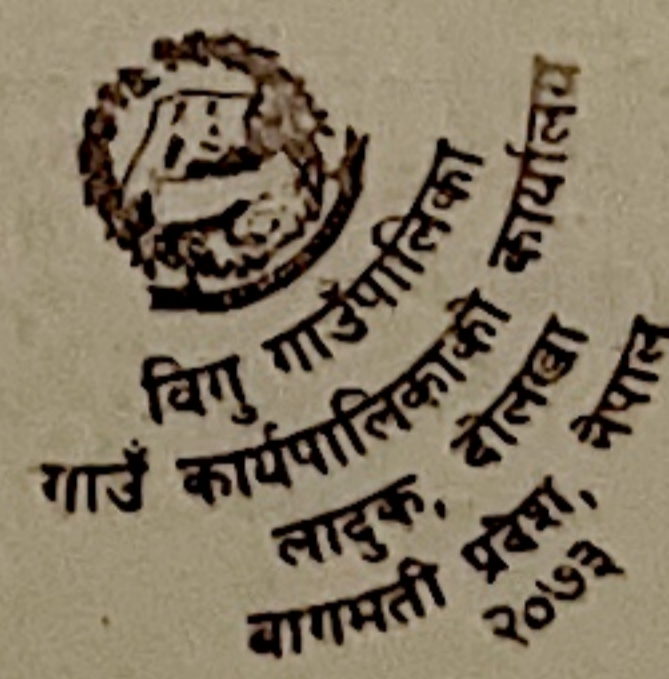 विगु गाउँपालिका
गाउँ कार्यपालिकाको कार्यालय
लादुक, दोलखा
वागमती प्रदेश, नेपाल
२०७३